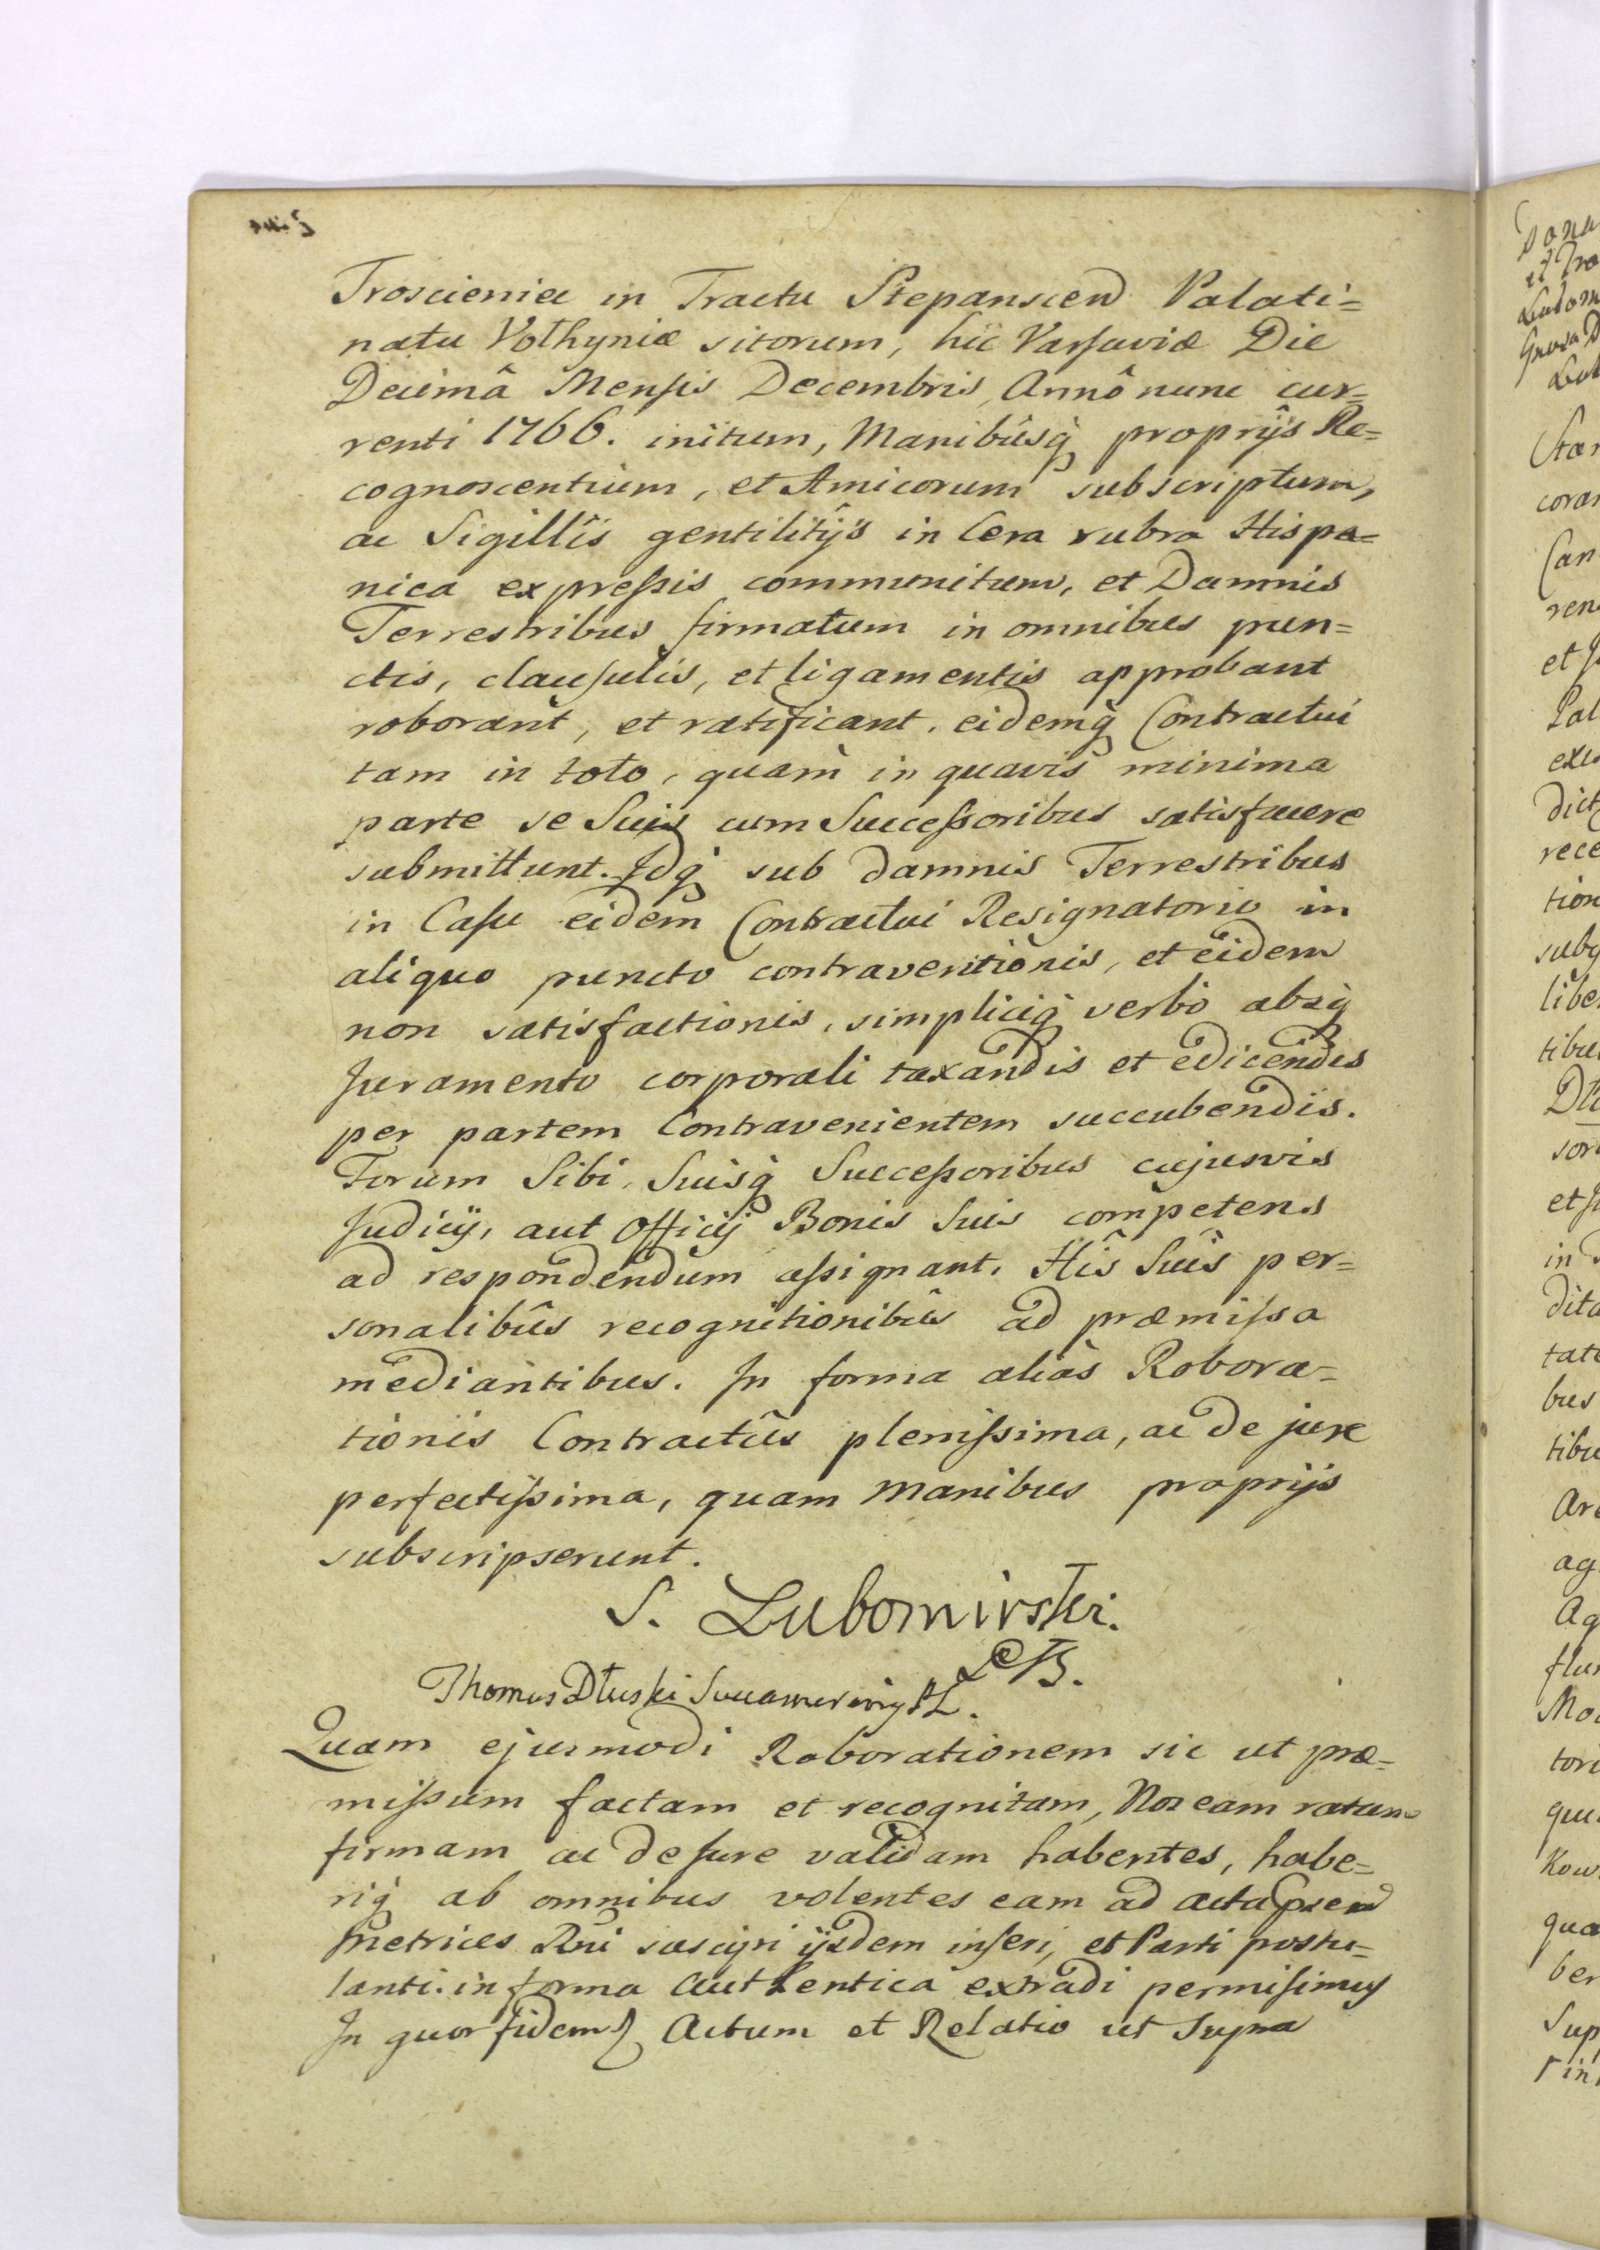 Troscieniec in Tractu Stepanscen Palati=
natu Volhyniæ sitorum, hic Varsaviæ Die
Decimâ Mensis Decembris, Annô nunc cur=
renti 1766. initum, Manibûsq́ proprijs Re=
cognoscentium, et Amicorum subscriptum,
ac Sigillîs gentilitijs in Cera rubra Hispa=
nica expreſsis communitum, et Damnis
Terrestribus firmatum in omnibus pun=
ctis, clausulis, et ligamentis approbant
roborant, et ratificant. eidemq́ Contractui
tam in toto, quam in quavis minima
parte se Suis cum Succeſsoribus satisfacere
submittunt. Idq́ sub damnis Terrestribus
in Casu eidem Contractui Resignatorio in
aliquo puncto contraventionis, et eidem
non satisfactionis, simpliciq́ verbo absq́
Juramento corporali taxandis et edicendis
per partem Contravenientem succubendis.
Forum Sibi, Suisq́ Succeſsoribus cujusvis
Judicij, aut Officij Bonis Suis competens
ad respondendum aſsignant. Hîs Suîs per=
sonalibûs recognitionibûs ad præmiſsa
mediantibus. In forma aliàs Robora=
tionis Contractûs pleniſsima, ac de jure
perfectiſsima, quam Manibus proprijs
subscripserunt.
S. Lubomirski.
Thomas Dłuski
Quam ejusmodi Roborationem sic ut præ=
miſsum factam et recognitam, Nos eam ratam
firmam ac de Jure validam habentes, habe=
riq́ ab omnibus volentes eam ad acta præsen
Metrices Rni suscipi ijsdem inseri, et Parti postu=
lanti in forma authentica extradi permisimus
In quor fidem Actum et Relatio ut Supra